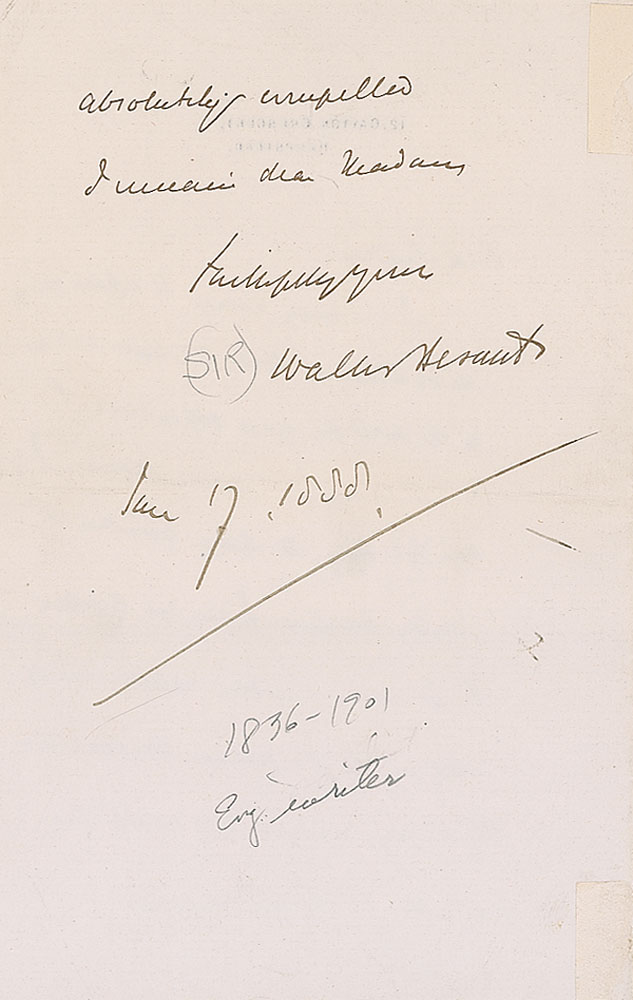 absolutely compelled
I remain dear Madam
Faithfully yours
(SIR) Walter Besant
Jan 17. 1888.
1836-1901
Eng. writer